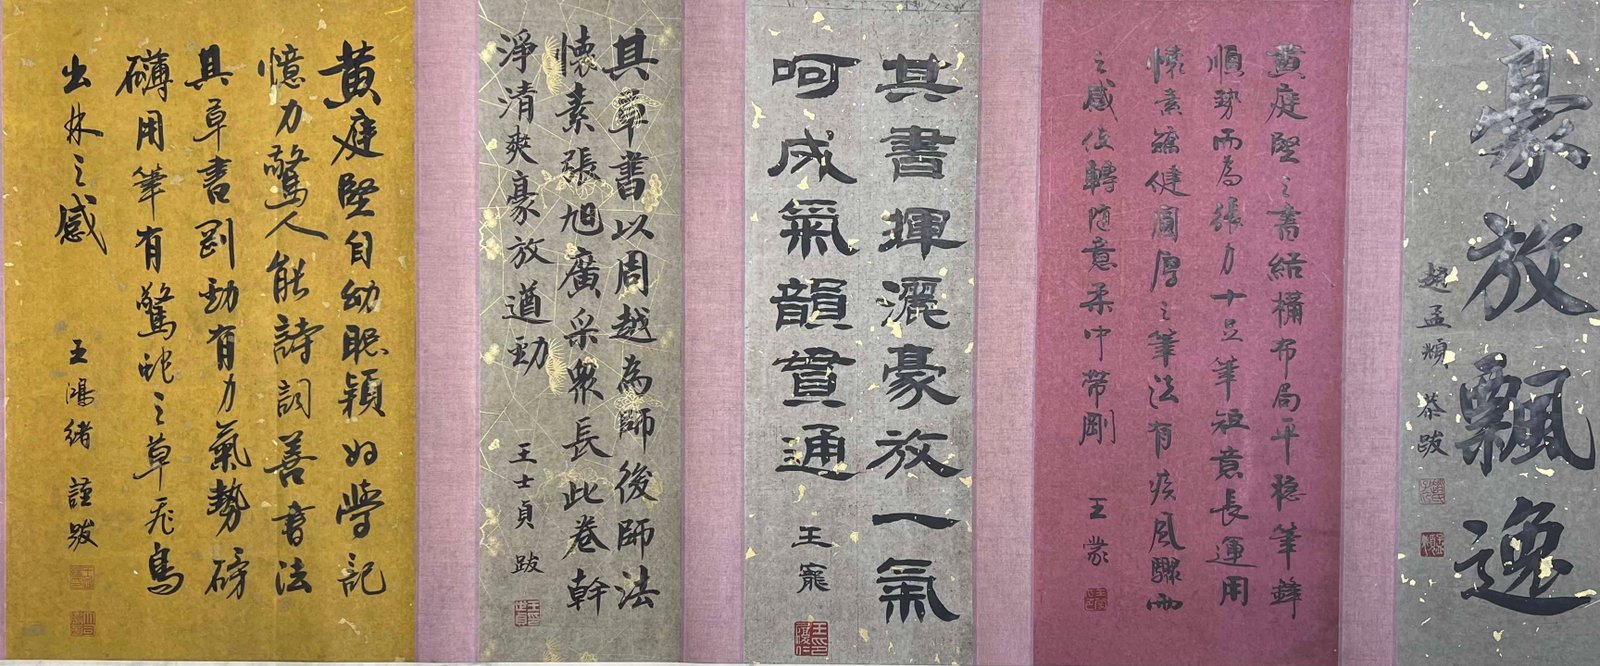 豪放飄逸
趙孟頫 恭跋
黃庭堅之書結構布局平穩筆鋒
順勢而為張力十足筆短意長運用
懷素矯健圓厚之筆法有疾風驟雨
之感使轉隨意柔中帶剛
王蒙
其書揮灑豪放一氣
呵成氣韻貫通
王寵
其草書以周越為師後師法
懷素張旭廣采眾長此卷幹
淨清爽豪放遒勁
王士貞 跋
黃庭堅自幼聰穎好學記
憶力驚人能詩詞善書法
其草書剛勁有力氣勢磅
礴用筆有驚蛇之草飛鳥
出林之感
王鴻緒 謹跋